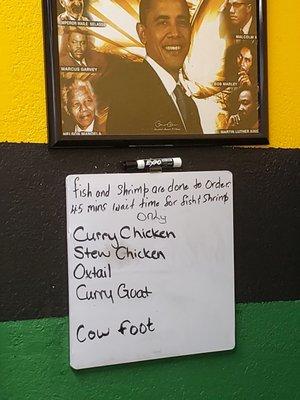 EMPEROR HAILE SELASSIE
MALCOLM X
MARCUS GARVEY
BOB MARLEY
NELSON MANDELA
MARTIN LUTHER KING
EXPO
fish and Shrimp are done to Order
45 mins wait time for fish & Shrimp
Only
Curry Chicken
Stew Chicken
Oxtail
Curry Goat
Cow foot